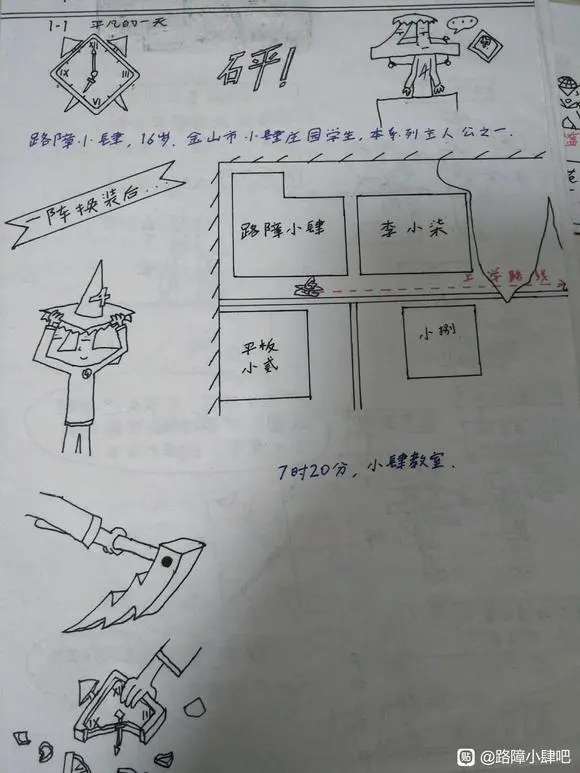 1-1 平凡的一天
XII
III
VI
IX
砰!
4
路障小肆,16岁,金山市小肆庄园学生,本系列主人公之一.
一阵换装后...
路障小肆
李小柒
上学路线
平板
小贰
小捌
4
7时20分,小肆教室.
XII
III
IX
贴 @路障小肆吧